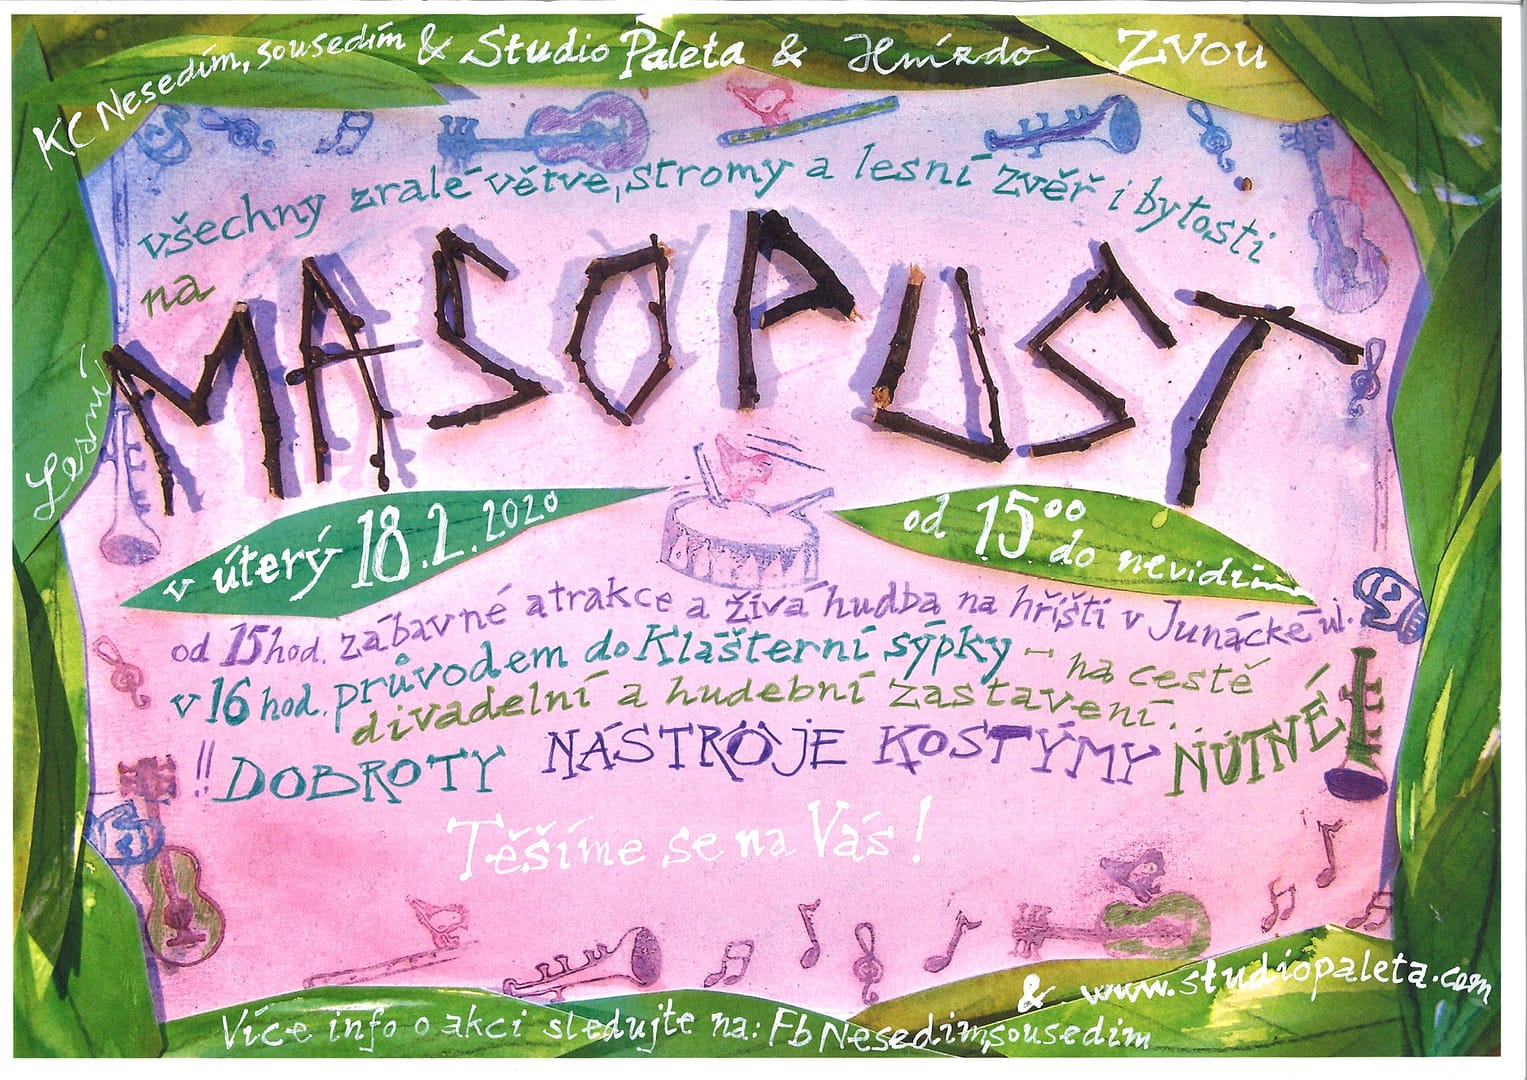 KC Nesedím, sousedím & Studio Paleta & Hnízdo Zvou
všechny zralé větve, stromy a lesní zvěř i bytosti
na
Lesní
MASOPUST
v úterý 18.2.2020
od 15⁰⁰ do nevidím
od 15hod. zábavné atrakce a živá hudba na hřišti v Junácké ul.
v 16 hod. průvodem do Klášterní sýpky - na cestě
divadelní a hudební zastavení.
!! DOBROTY NÁSTROJE KOSTÝMY NUTNÉ
Těšíme se na Vás!
& www.studiopaleta.com
Více info o akci sledujte na: Fb Nesedim,sousedim